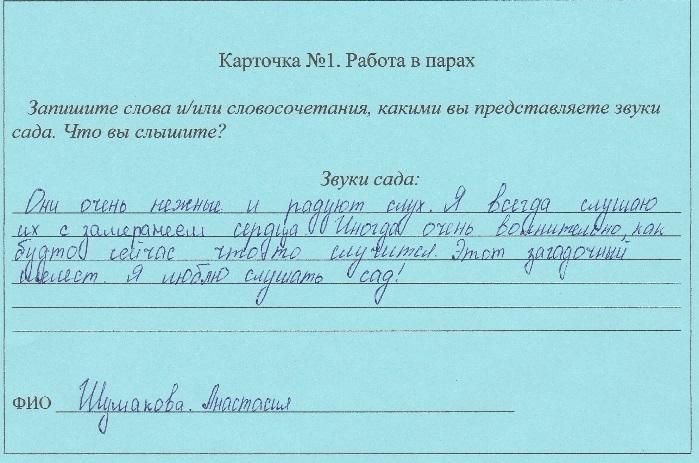 Карточка №1. Работа в парах
Запишите слова и/или словосочетания, какими вы представляете звуки
сада. Что вы слышите?
Звуки сада:
Они очень нежные и радуют слух. Я всегда слушаю
их с замеранеем сердца Иногда очень волнительно, как
будто сейчас что то случится. Этот загадочный
шелест. Я люблю слушать сад!
ФИО Шумакова. Анастасия